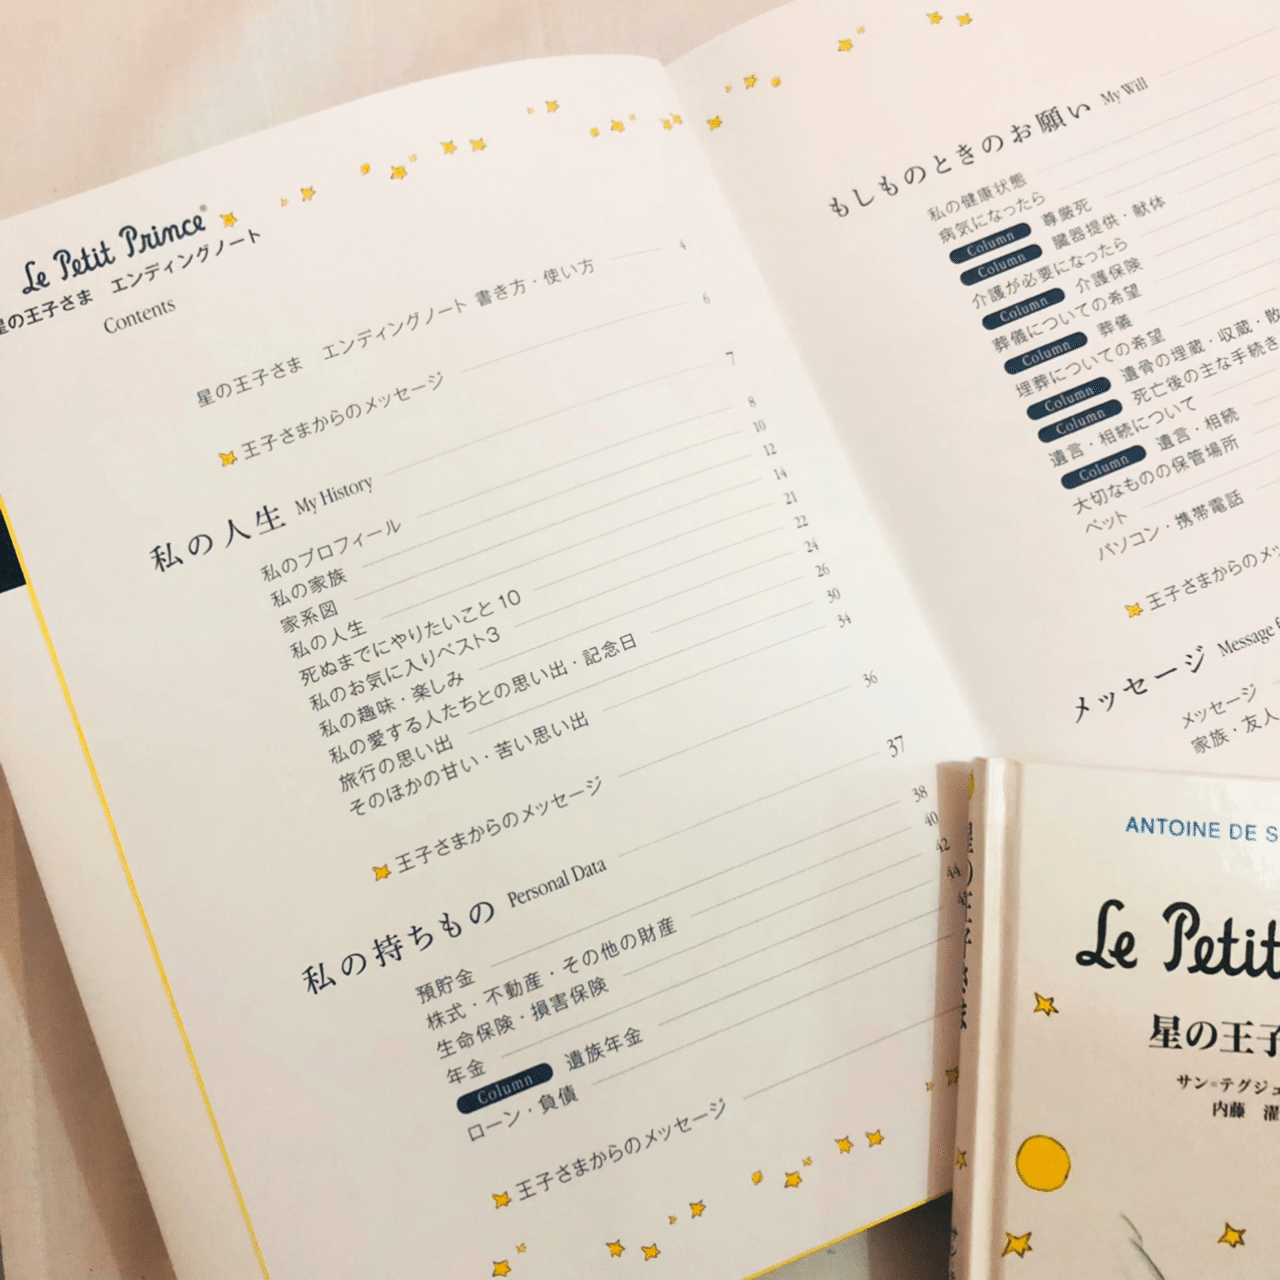 Le Petit Prince®
星の王子さま エンディングノート
Contents
星の王子さま エンディングノート 書き方・使い方 4
王子さまからのメッセージ 6
私の人生 My History 7
私のプロフィール 8
私の家族 10
家系図 12
私の人生 14
死ぬまでにやりたいこと10 21
私のお気に入りベスト3 22
私の趣味・楽しみ 24
私の愛する人たちとの思い出・記念日 26
旅行の思い出 30
そのほかの甘い・苦い思い出 34
王子さまからのメッセージ 36
私の持ちもの Personal Data 37
預貯金 38
株式・不動産・その他の財産 40
生命保険・損害保険 42
年金 44
Column 遺族年金
ローン・負債
王子さまからのメッセージ
もしものときのお願い My Will
私の健康状態
病気になったら
Column 尊厳死
Column 臓器提供・献体
介護が必要になったら
Column 介護保険
葬儀についての希望
Column 葬儀
埋葬についての希望
Column 遺骨の埋蔵・収蔵・散
Column 死亡後の主な手続き
遺言・相続について
Column 遺言・相続
大切なものの保管場所
ペット
パソコン・携帯電話
王子さまからのメッ
メッセージ Message
メッセージ
家族・友人
ANTOINE DE S
Le Petit
星の王子
サン=テグジュ
内藤 濯